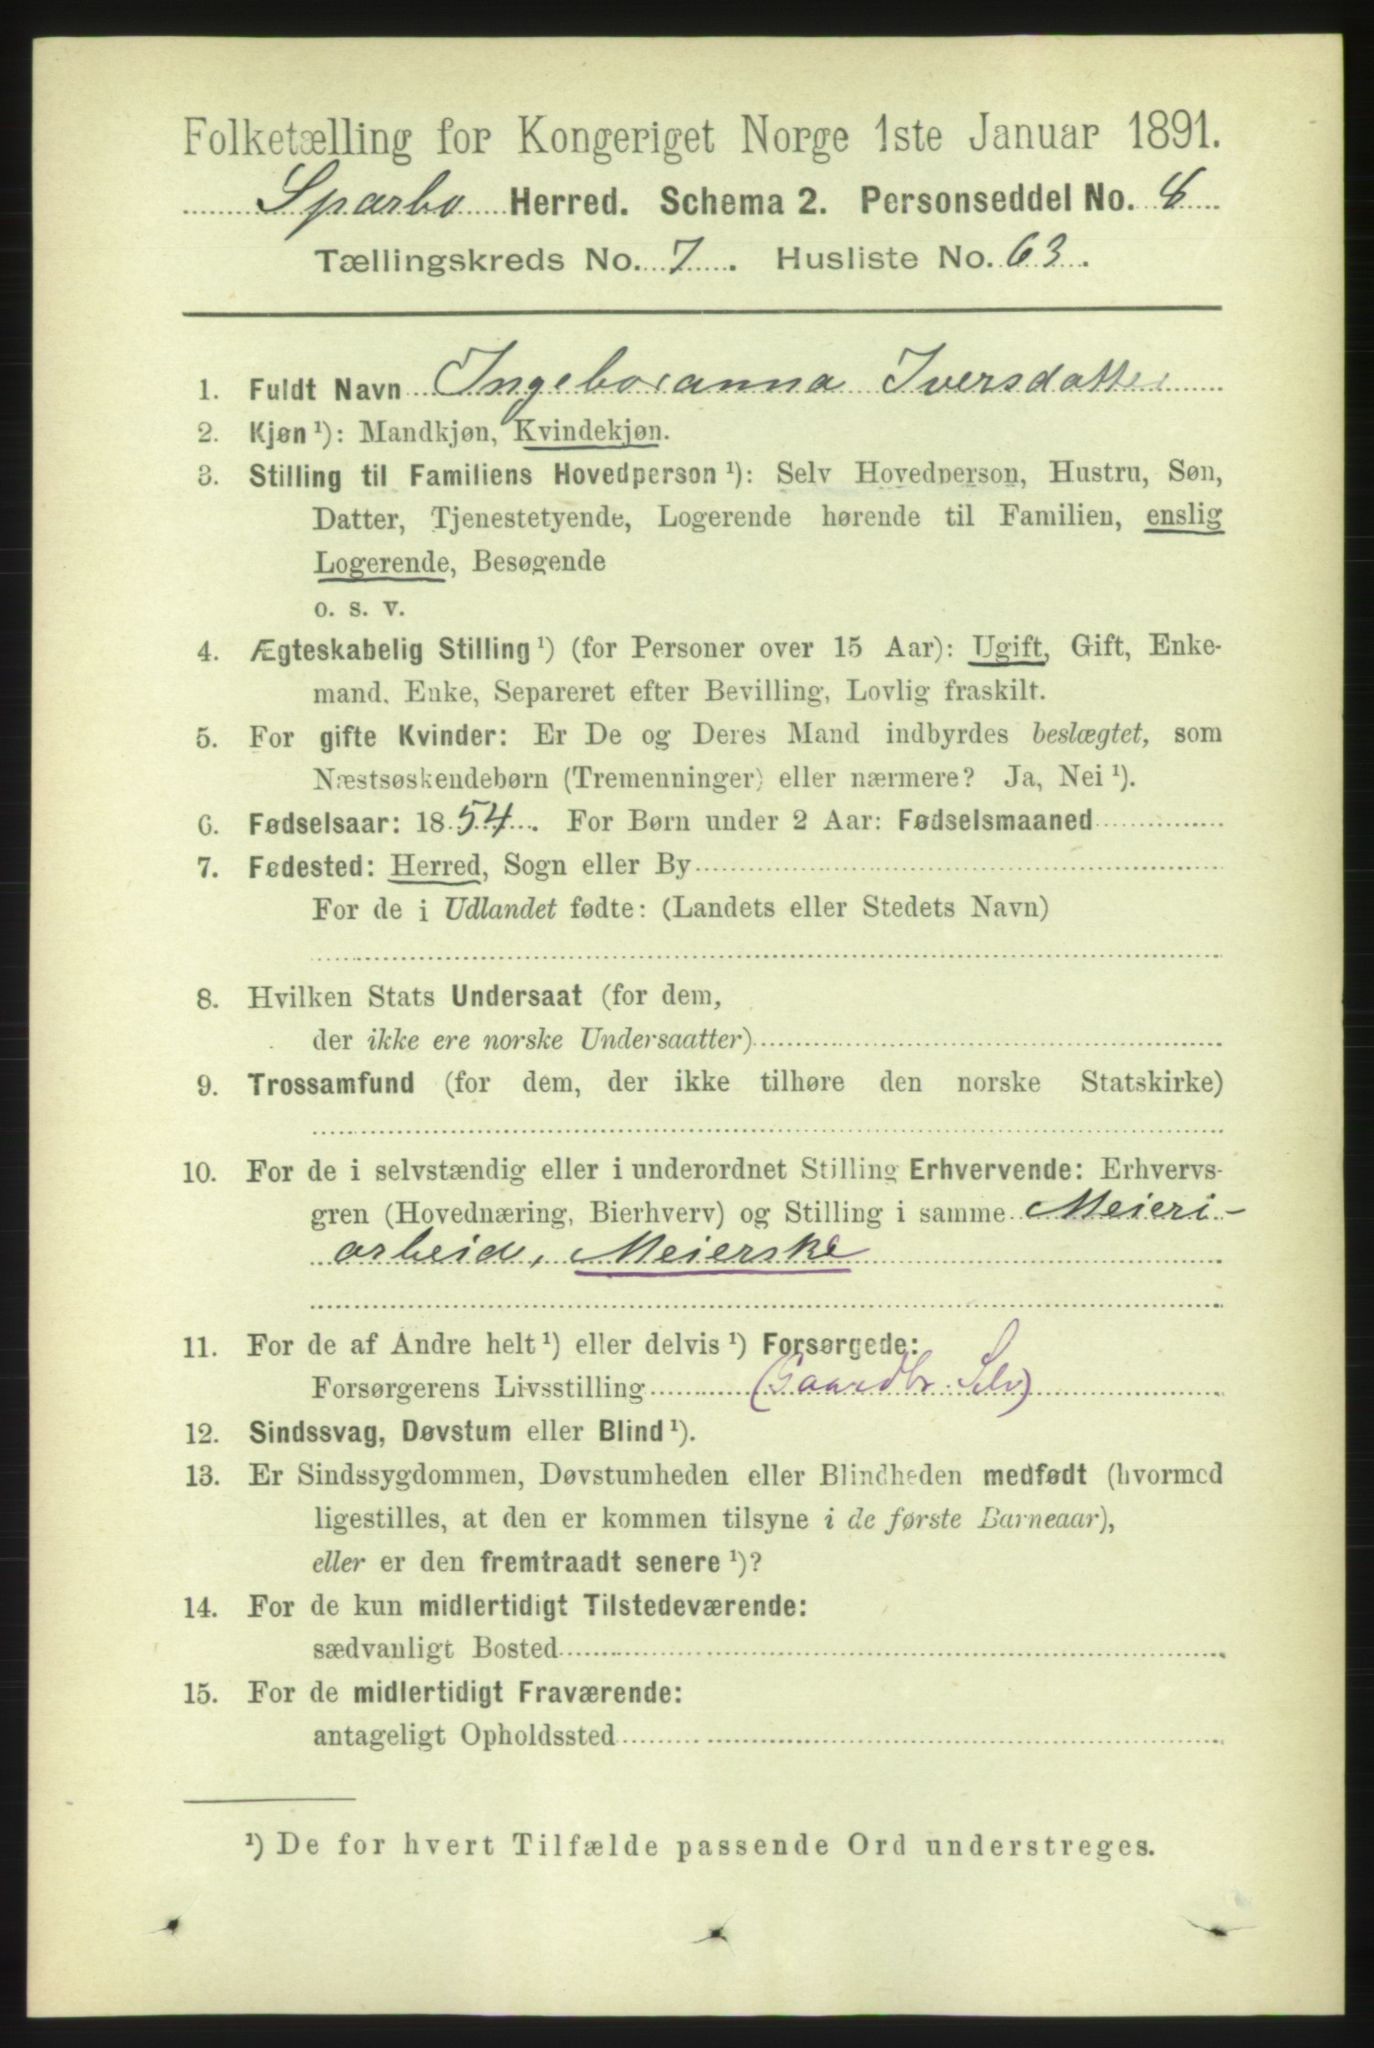 Folketælling for Kongeriget Norge 1ste Januar 1891.
Sparbo Herred. Schema 2. Personseddel No. 6
Tællingskreds No. 7. Husliste No. 63.
1. Fuldt Navn Ingeboranna Iversdatter
2. Kjøn ¹): Mandkjøn, Kvindekjøn.
3. Stilling til Familiens Hovedperson ¹): Selv Hovedperson, Hustru, Søn,
Datter, Tjenestetyende, Logerende hørende til Familien, enslig
Logerende, Besøgende
o. s. v.
4. Ægteskabelig Stilling ¹) (for Personer over 15 Aar): Ugift, Gift, Enke-
mand, Enke, Separeret efter Bevilling, Lovlig fraskilt.
5. For gifte Kvinder: Er De og Deres Mand indbyrdes beslægtet, som
Næstsøskendebørn (Tremenninger) eller nærmere? Ja, Nei ¹).
6. Fødselsaar: 1854. For Børn under 2 Aar: Fødselsmaaned
7. Fødested: Herred, Sogn eller By
For de i Udlandet fødte: (Landets eller Stedets Navn)
8. Hvilken Stats Undersaat (for dem,
der ikke ere norske Undersaatter)
9. Trossamfund (for dem, der ikke tilhøre den norske Statskirke)
10. For de i selvstændig eller i underordnet Stilling Erhvervende: Erhvervs-
gren (Hovednæring, Bierhverv) og Stilling i samme Meieri-
arbeid, Meierske
11. For de af Andre helt ¹) eller delvis ¹) Forsørgede:
Forsørgerens Livsstilling (Gaardbr. Selv)
12. Sindssvag, Døvstum eller Blind ¹).
13. Er Sindssygdommen, Døvstumheden eller Blindheden medfødt (hvormed
ligestilles, at den er kommen tilsyne i de første Barneaar),
eller er den fremtraadt senere ¹)?
14. For de kun midlertidigt Tilstedeværende:
sædvanligt Bosted
15. For de midlertidigt Fraværende:
antageligt Opholdssted
¹) De for hvert Tilfælde passende Ord understreges.